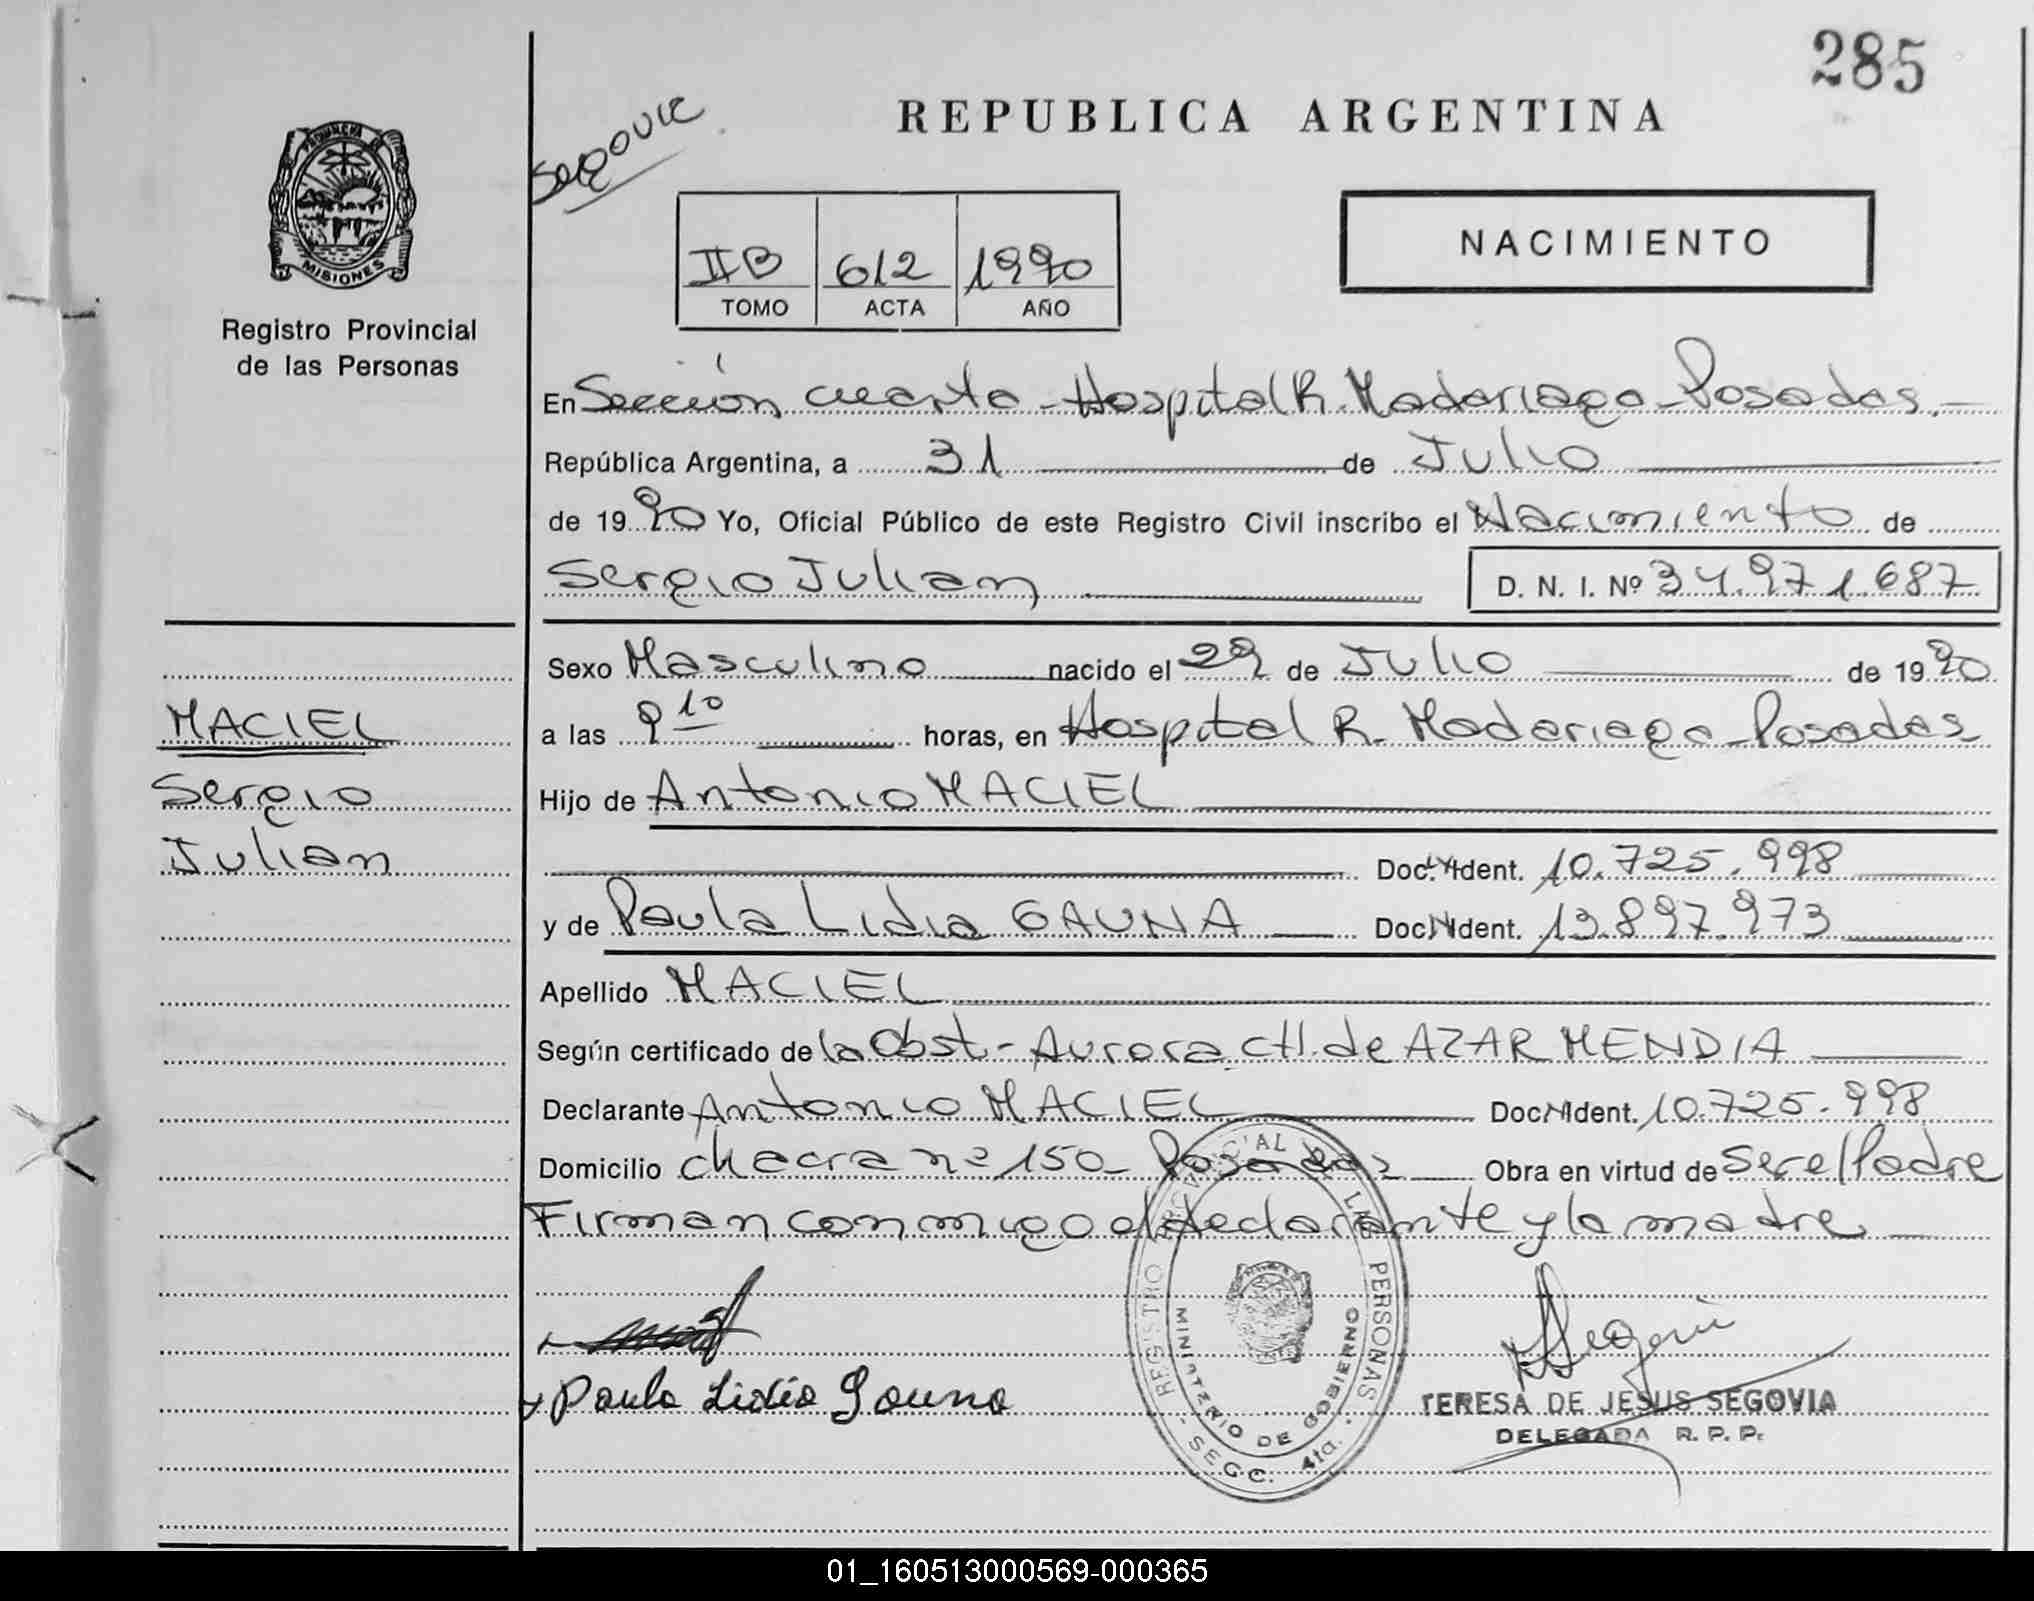 285
REPUBLICA ARGENTINA
PROVINCIA
MISIONES
Registro Provincial
de las Personas
IIB 612 1990
TOMO ACTA AÑO
NACIMIENTO
En Sección cuarta - Hospital R. Madariaga - Posadas.-
República Argentina, a 31 de Julio
de 1990 Yo, Oficial Público de este Registro Civil inscribo el Nacimiento de
Sergio Julian D. N. I. Nº 34.971.687
Sexo Masculino nacido el 29 de Julio de 1990
MACIEL
a las 9 10 horas, en Hospital R. Madariaga - Posadas
Sergio
Hijo de Antonio MACIEL
Julian
Doc. N Ident. 10.725.998
y de Paula Lidia GAUNA Doc. N Ident. 13.897.973
Apellido MACIEL
Según certificado de la Obst.- Aurora ctl. de AZAR MENDIA
Declarante Antonio MACIEL Doc. N Ident. 10.725.998
Domicilio chacra nº 150 - Posadas Obra en virtud de Ser el Padre
Firman conmigo el declarante y la madre
Paula Lidia Gauna
REGISTRO PROVINCIAL DE LAS PERSONAS
MINISTERIO DE GOBIERNO
4ta.
TERESA DE JESUS SEGOVIA
DELEGADA R. P. P.
01_160513000569-000365